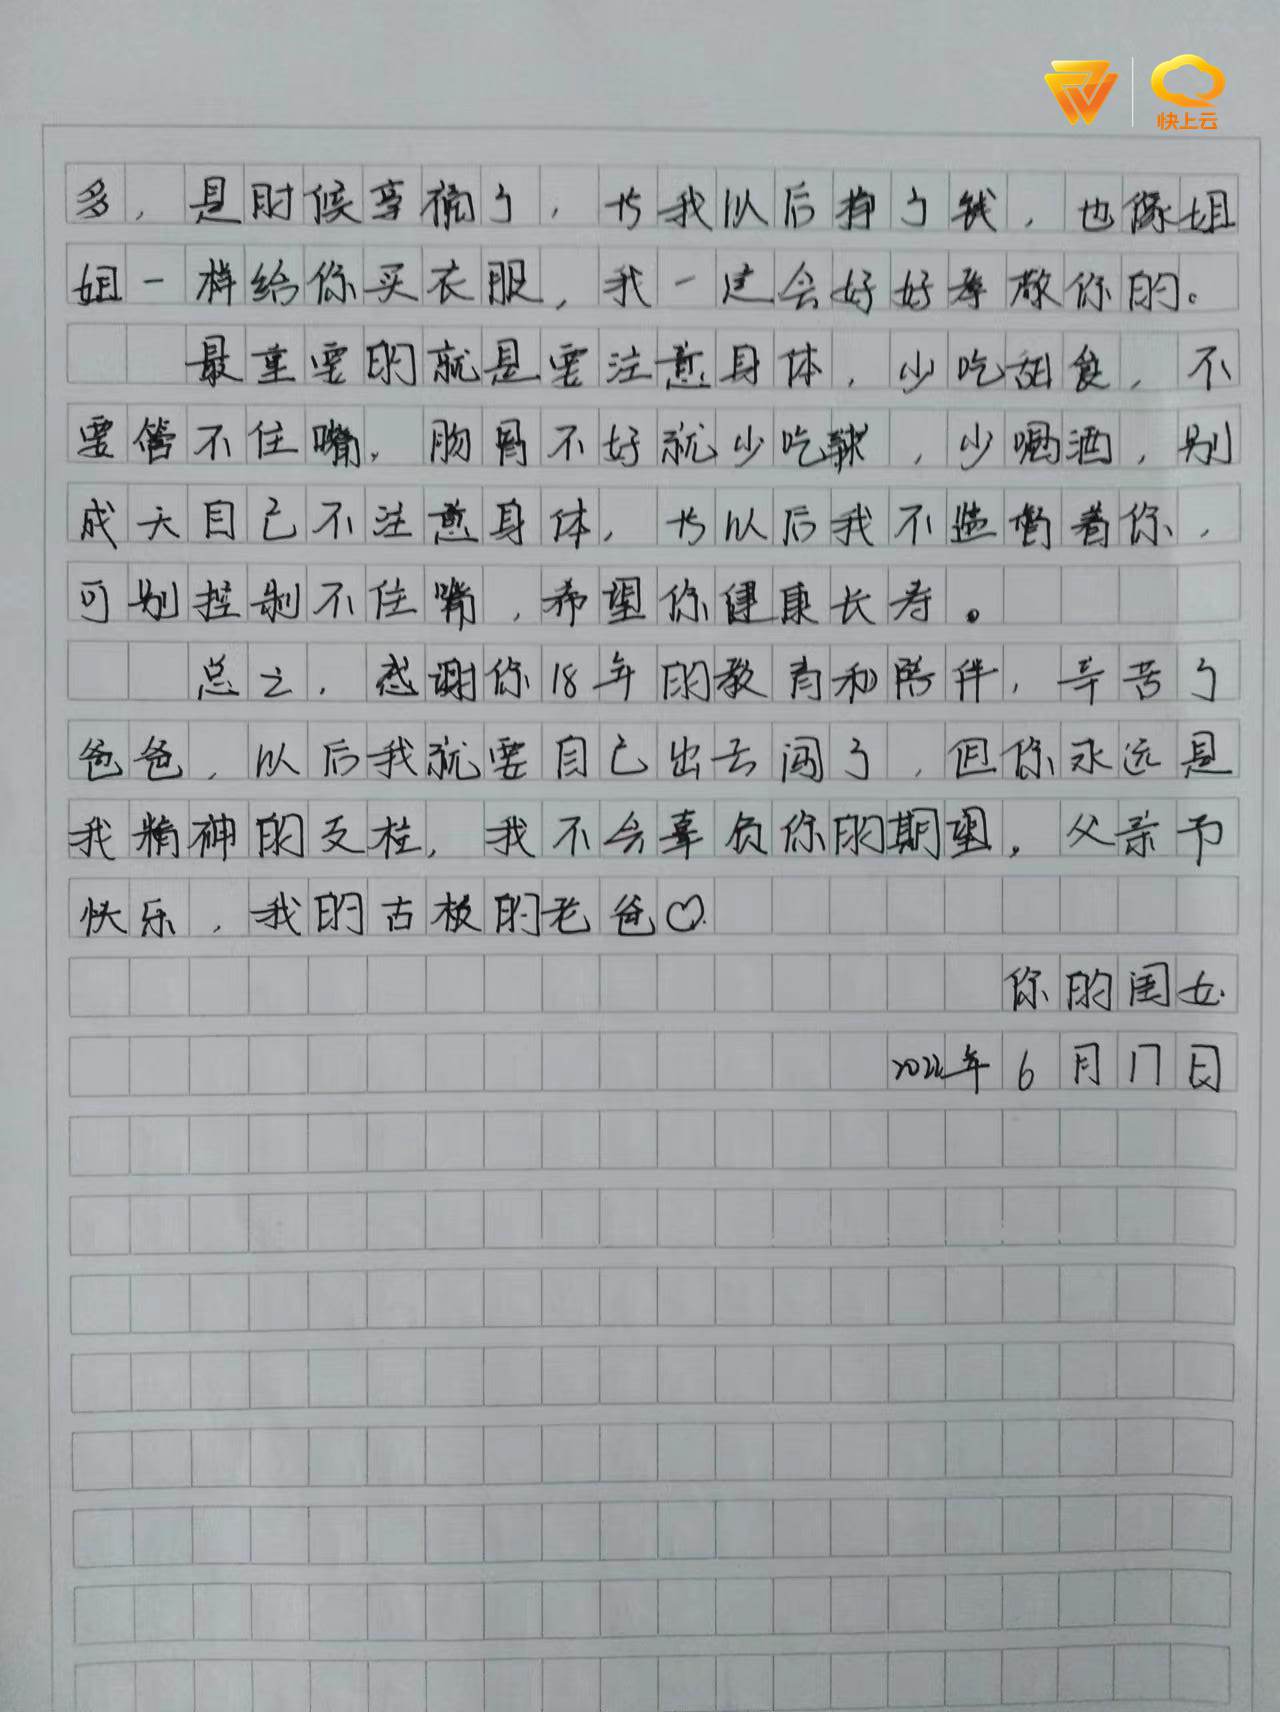 快上云
多，是时候享福了，等我以后挣了钱，也像姐
姐一样给你买衣服，我一定会好好孝敬你的。
最重要的就是要注意身体，少吃甜食，不
要管不住嘴，胸骨不好就少吃辣，少喝酒，别
成天自己不注意身体，等以后我不监督着你，
可别控制不住嘴，希望你健康长寿。
总之，感谢你18年的教育和陪伴，辛苦了
爸爸，以后我就要自己出去闯了，但你永远是
我精神的支柱，我不会辜负你的期望，父亲节
快乐，我的古板的老爸♡
你的闺女
2022年6月17日